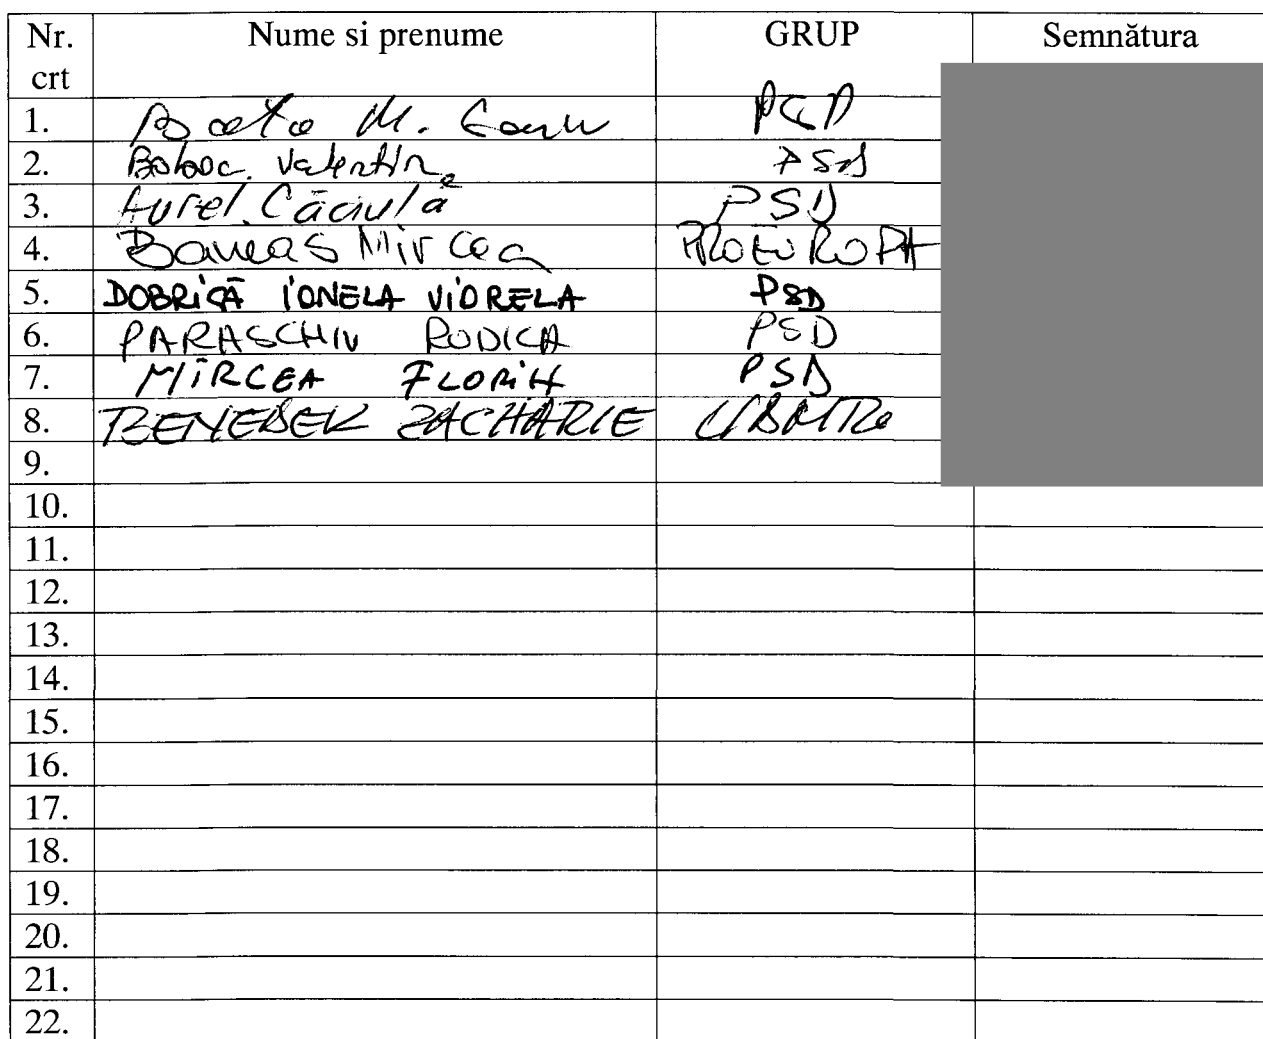 Nr. crt Nume si prenume GRUP Semnătura
1. M.
2. Boboc Valentin PSD
3. Aurel Căciulă PSD
4. Baneas Mircea PROEUROPA
5. DOBRICĂ IONELA VIORELA PSD
6. PARASCHIV RODICA PSD
7. MIRCEA FLORIN PSD
8. BENEDEK ZACHARIE
9.
10.
11.
12.
13.
14.
15.
16.
17.
18.
19.
20.
21.
22.